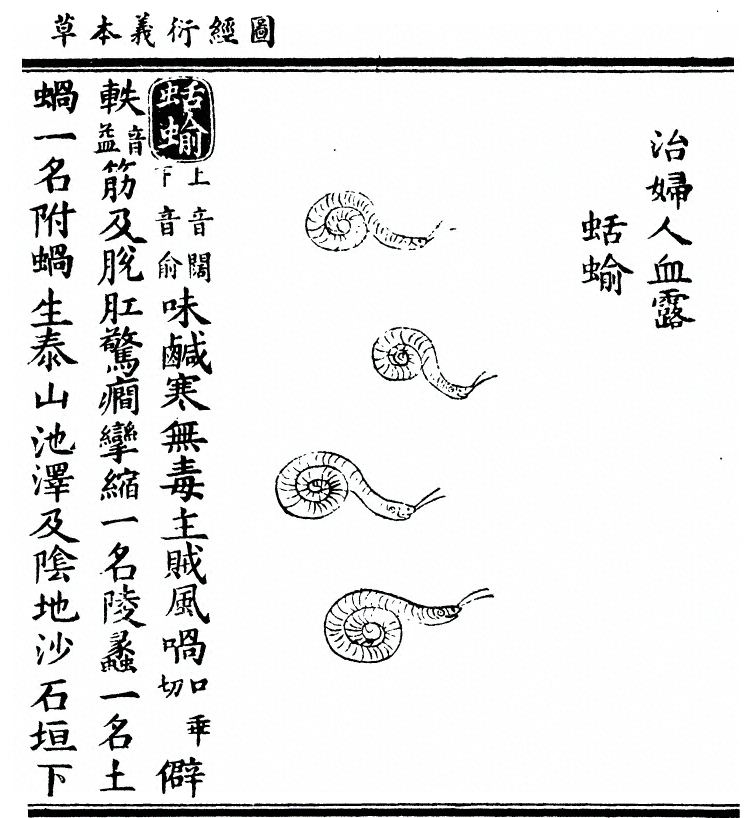 圖經衍義本草
治婦人血露
蛞蝓
蛞蝓上音闊下音俞味鹹寒無毒主賊風喎口乖切僻
軼音益筋及脫肛驚癇攣縮一名陵蠡一名土
蝸一名附蝸生泰山池澤及陰地沙石垣下